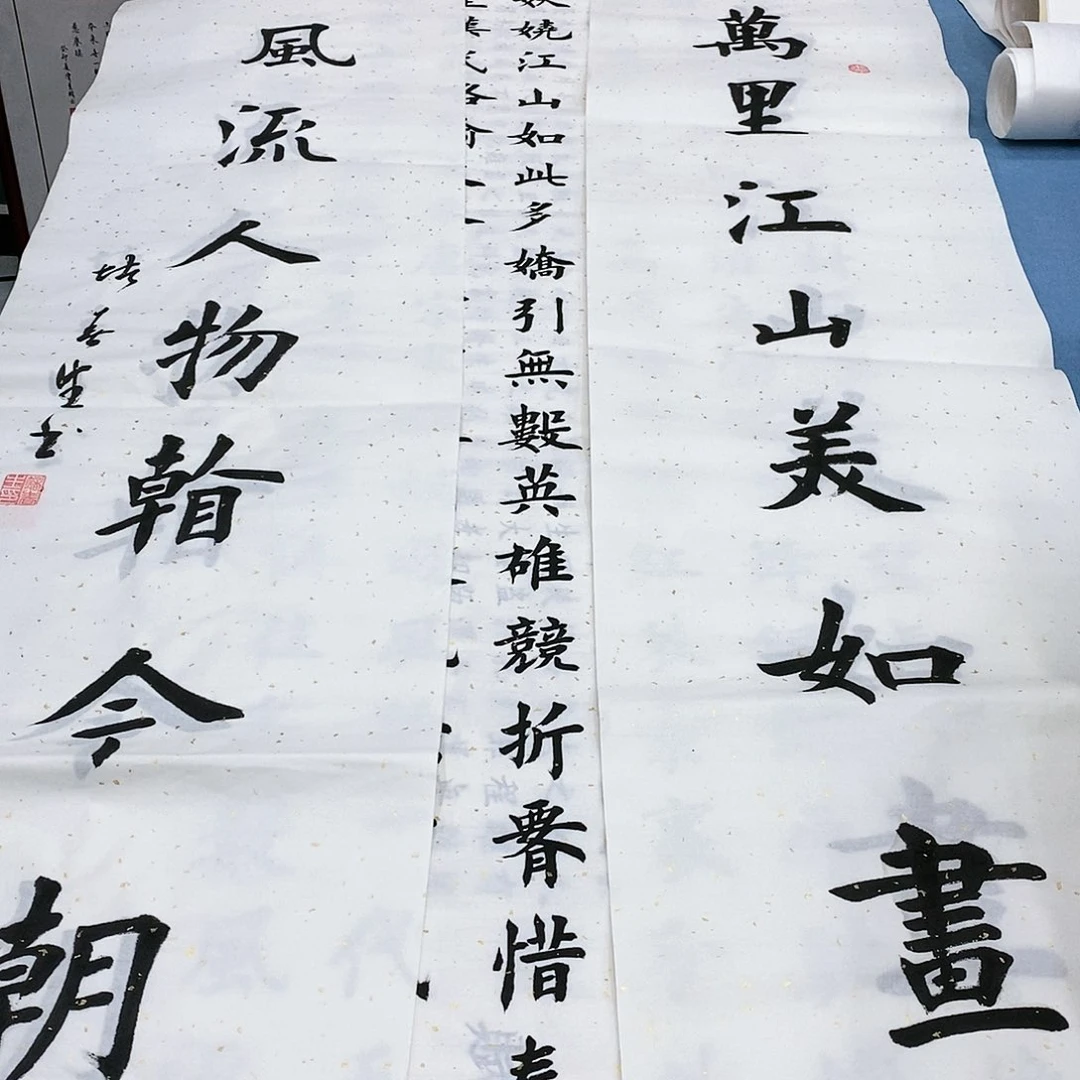 萬里江山美如畫
嬈江山如此多嬌引無數英雄競折腰惜
風流人物看今朝
生书